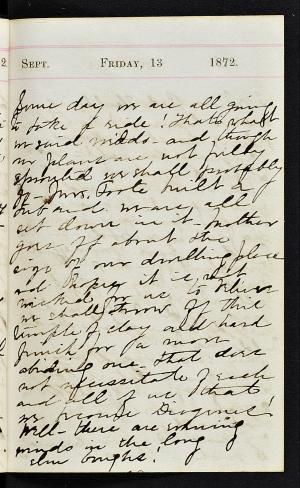 2 SEPT. FRIDAY, 13 1872.
Some day we are all going
to take a ride! That's what
we said and though
our plans are not fully
we shall probably
go. Mrs. Foote built a
and we are all
set down in it. Mother
goes off about the
size of our dwelling place
and it is not
wicked for us to
we shall throw off this
temple of clay and
for a more
abiding one. That does
not necessitate of each
and all of us that
we Diogenes!
Well there are
winds in the long
elm boughs!